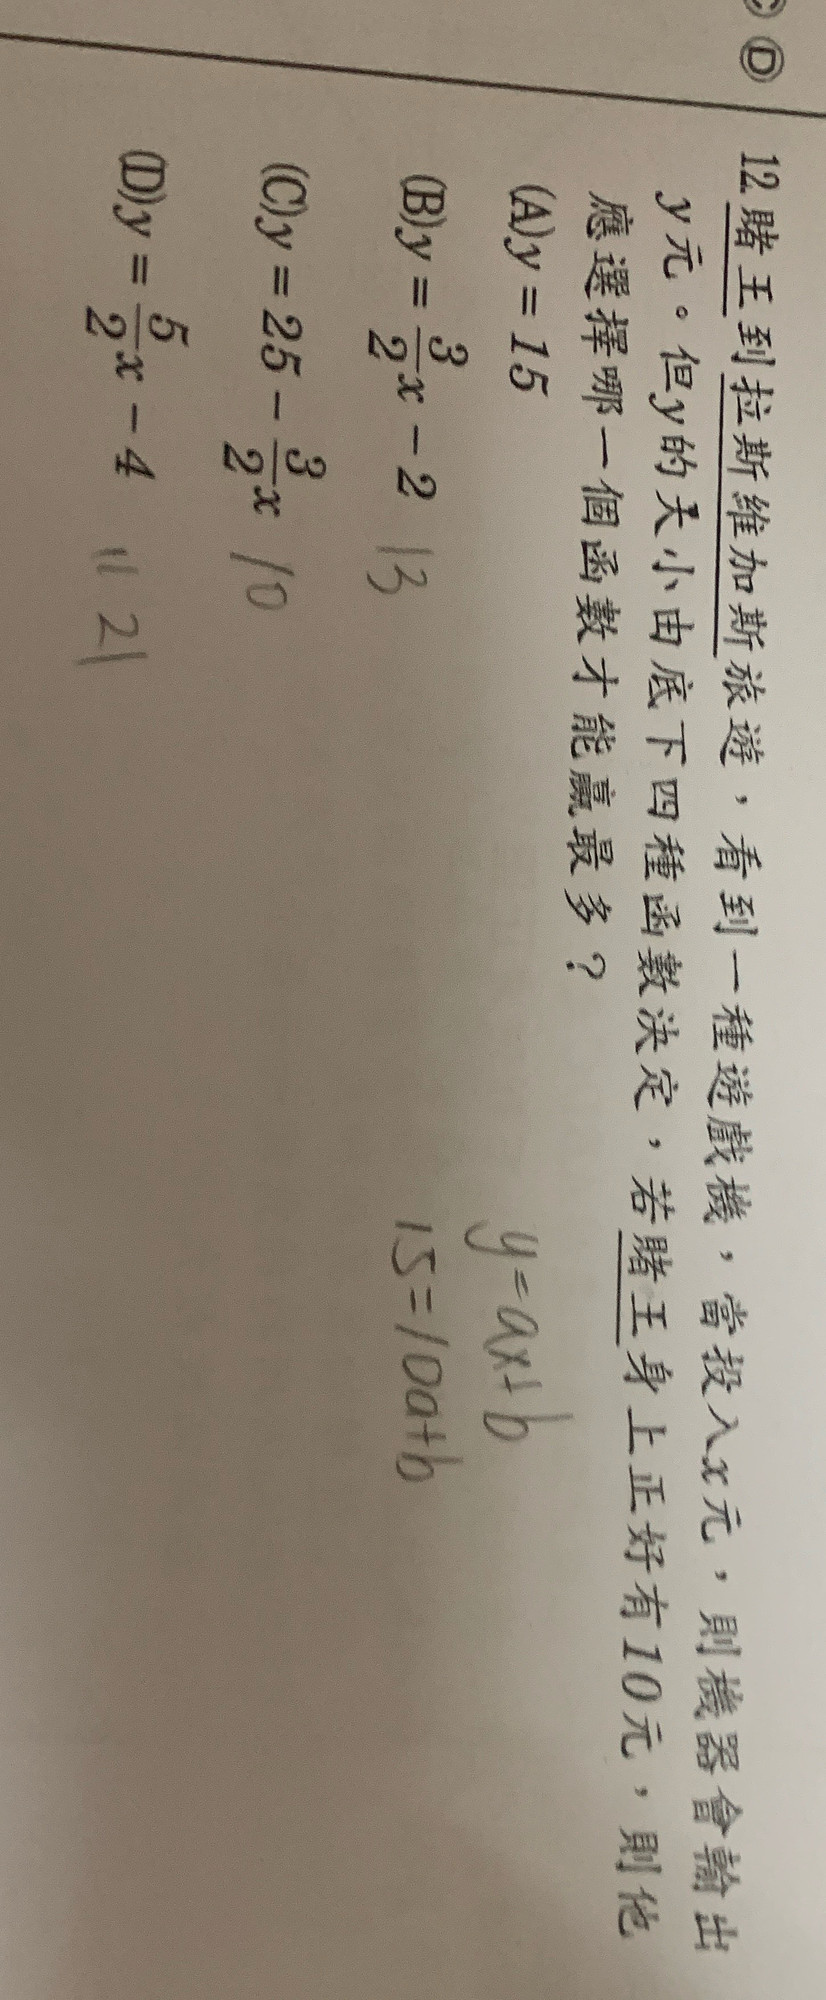 Ⓓ
12.賭王到拉斯維加斯旅遊，看到一種遊戲機，當投入x元，則機器會輸出
y元。但y的大小由底下四種函數決定，若賭王身上正好有10元，則他
應選擇哪一個函數才能贏最多？
(A)y = 15
y=ax+b
(B)y = 3/2 x − 2 13
15=10a+b
(C)y = 25 − 3/2 x 10
(D)y = 5/2 x − 4 21